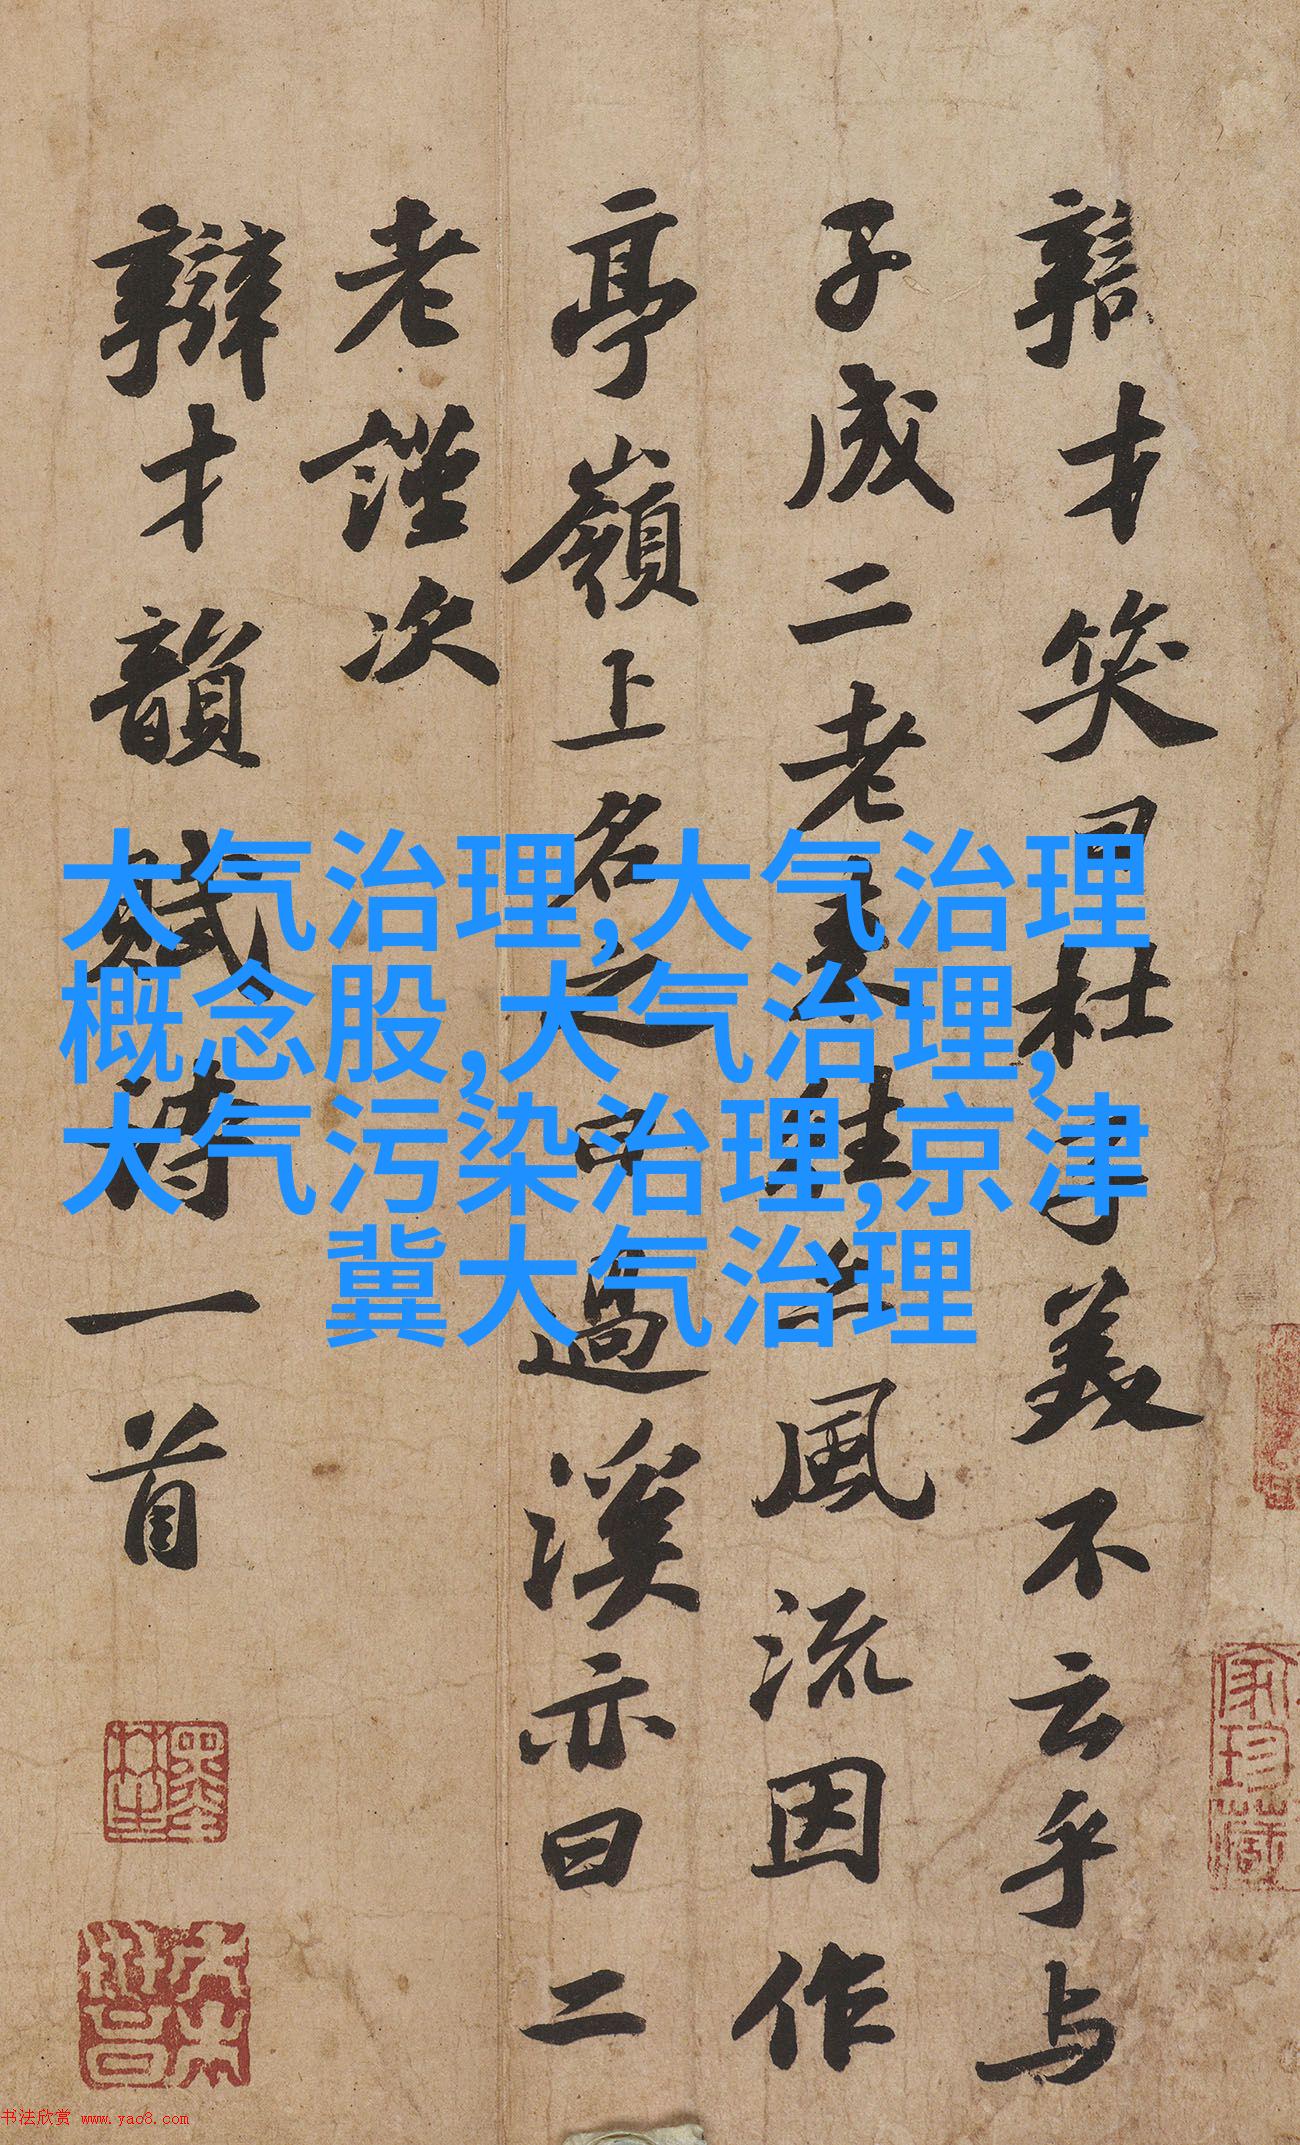 辯才笑曰杜子美不云乎与
子成二老来往亦風流因作
亭嶺上名之曰過溪亦曰二
老謹次
辯才韻賦詩一首
大气治理,大气治理
概念股,大气治理,
大气污染治理,京津
冀大气治理
家珍藏
书法欣赏 www.yac8.com